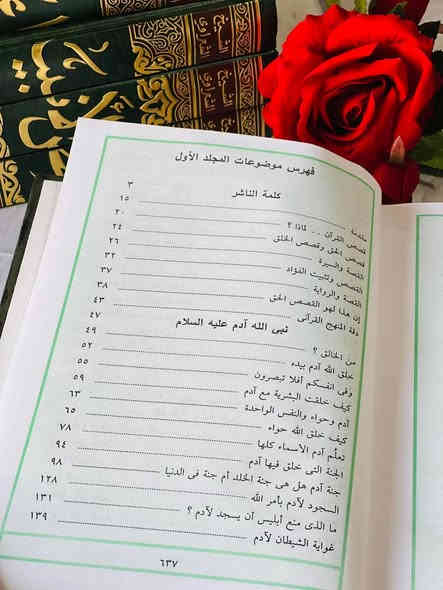 الشيخ الشعراوى
الشيخ الشعراوى
فهرس موضوعات المجلد الأول
كلمة الناشر ٣
مقدمة ١٥
قصص القرآن .. لماذا ؟ ٢٠
قصص الحق وقصص الخلق ٢٤
القصة والسيرة ٢٦
القصص وتثبيت الفؤاد ٣٢
القصة والرواية ٣٧
إن هذا لهو القصص الحق ٣٨
دقة المنهج القرآنى ٤٣
نبى الله آدم عليه السلام ٤٧
من الخالق ؟ ٤٩
خلق الله آدم بيده ٥٢
وفى انفسكم أفلا تبصرون ٥٥
كيف خلقت البشرية مع آدم ٥٩
آدم وحواء والنفس الواحدة ٦٣
كيف خلق الله حواء ٦٥
تعلُّم آدم الأسماء كلها ٧٨
الجنة التى خلق فيها آدم ٩٤
جنة آدم هل هى جنة الخلد أم جنة فى الدنيا ٩٨
السجود لآدم بأمر الله ١٢٨
ما الذى منع أبليس أن يسجد لآدم ؟ ١٣١
غواية الشيطان لآدم ١٣٩
٦٣٧